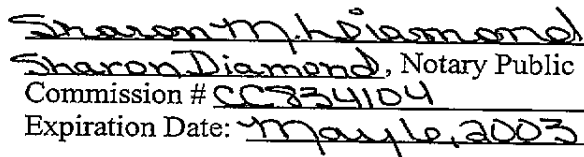 Sharon M. Diamond
Sharon Diamond, Notary Public
Commission # CC834104
Expiration Date: May 6, 2003